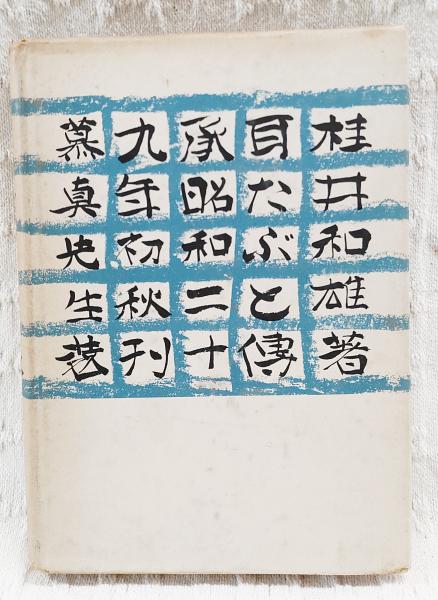 桂井和雄著
耳たぶと傳
承昭和二十
九年初秋刊
慕真央生